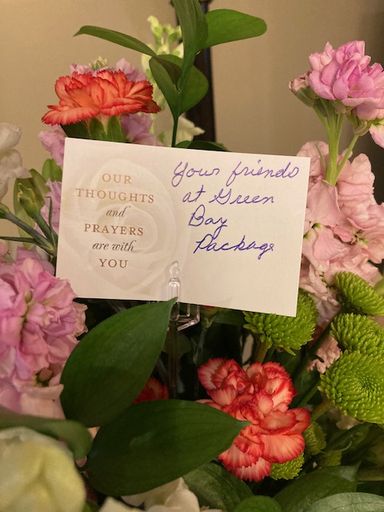 OUR
THOUGHTS
and
PRAYERS
are with
YOU
Your friends
at Green
Bay
Package